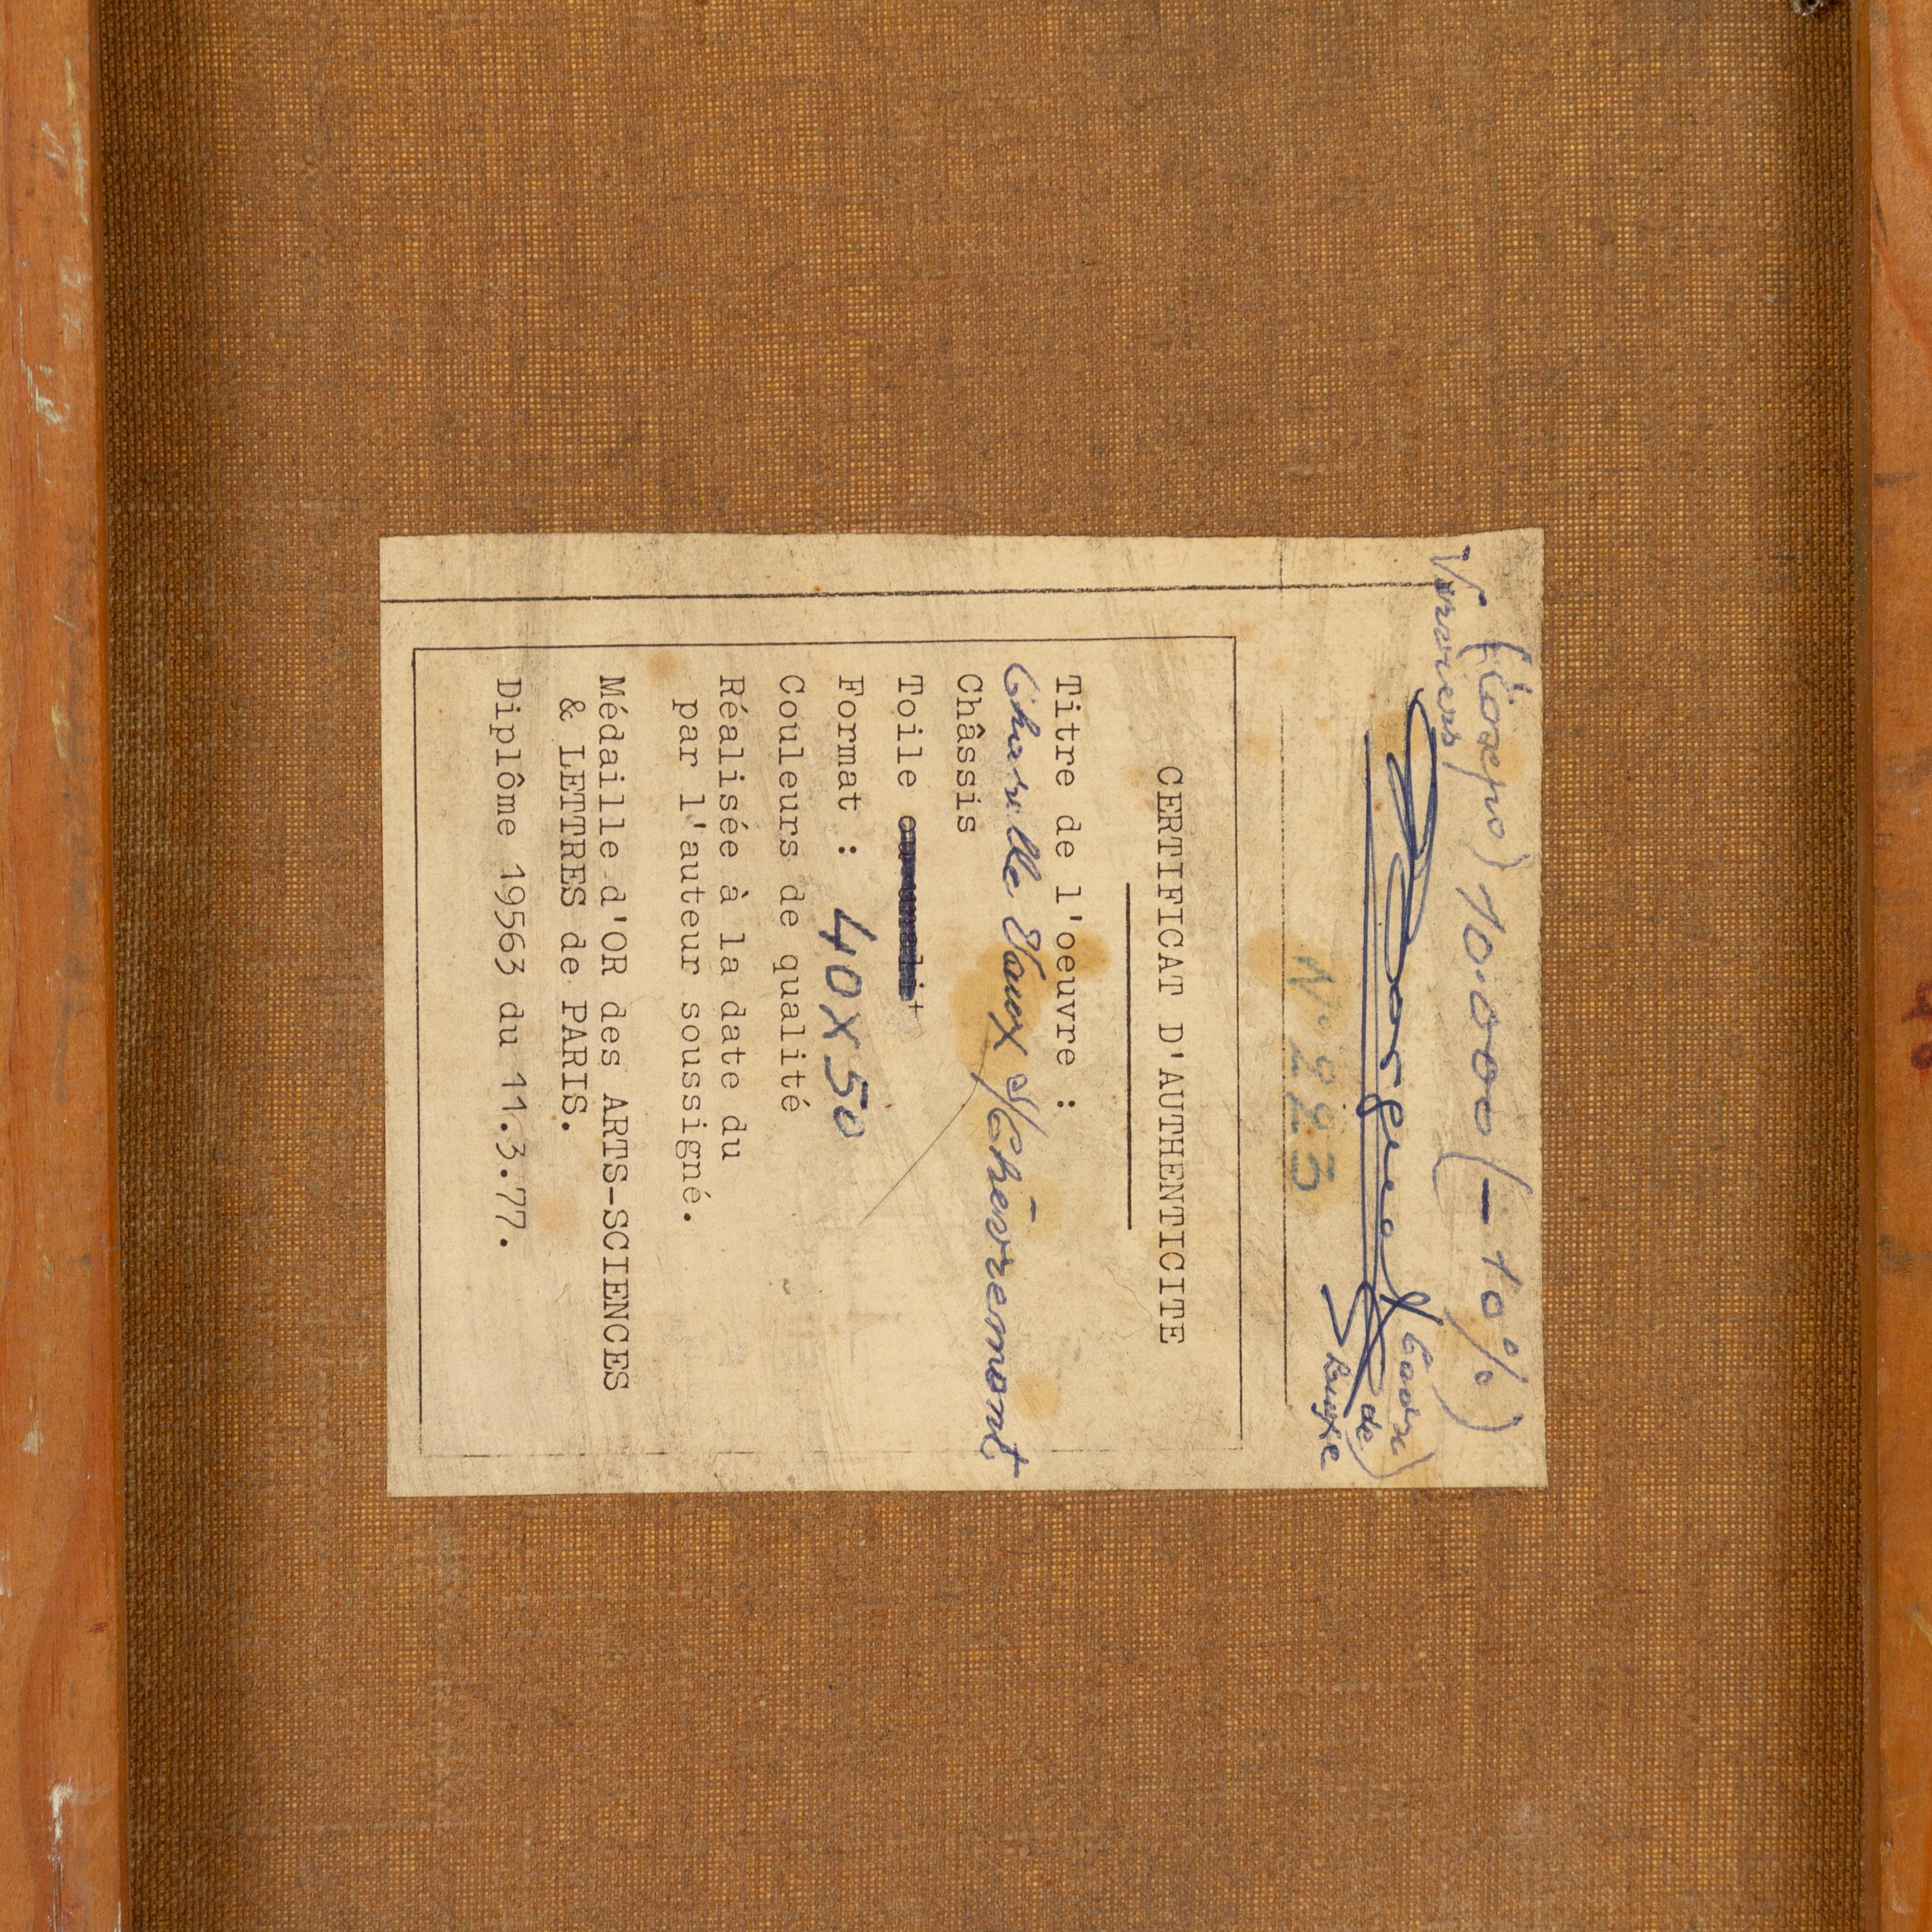 Vernviers
10.000 (-10%)
N° 223
de
CERTIFICAT D'AUTHENTICITE
Titre de l'oeuvre :
Vaux s/Chèvremont
Châssis
Toile
Format : 40X50
Couleurs de qualité
Réalisée à la date du
par l'auteur soussigné.
Médaille d'OR des ARTS-SCIENCES
& LETTRES de PARIS.
Diplôme 19563 du 11.3.77.